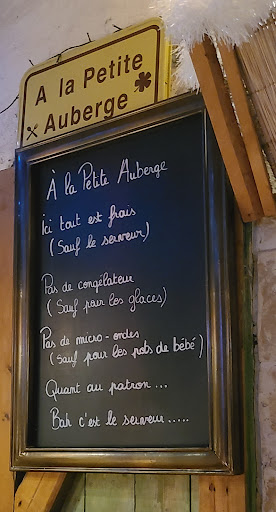 A la Petite
Auberge
À la Petite Auberge
Ici tout est frais
(Sauf le serveur)
Pas de congélateur
(Sauf pour les glaces)
Pas de micro-ondes
(sauf pour les pots de bébé)
Quant au patron...
Bah c'est le serveur.....